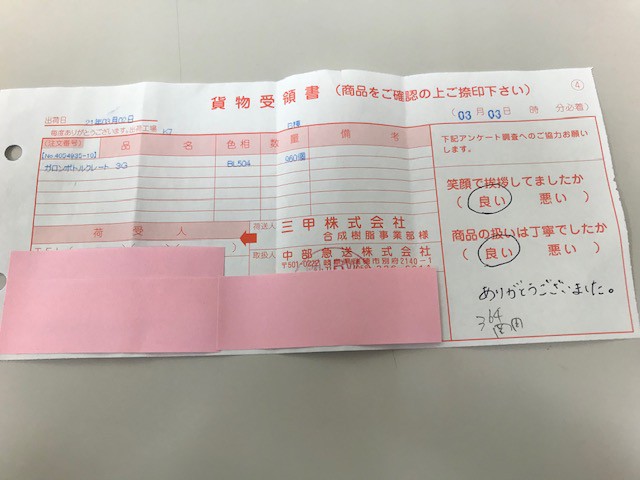 貨物受領書（商品をご確認の上ご捺印下さい） ④
出荷日 21年03月02日
（03月03日 時 分必着）
毎度ありがとうございます。出荷工場
（注文番号） 品 名 色相 数量 備考
【No.4054935-10】
ガロンボトルクレート 3G BL504 960個
荷受人
荷送人 三甲株式会社
合成樹脂事業部様
取扱人 中部急送株式会社
〒501-0222
下記アンケート調査へのご協力お願いします。
笑顔で挨拶してましたか
（ 良い 悪い ）
商品の扱いは丁寧でしたか
（ 良い 悪い ）
ありがとうございました。
364